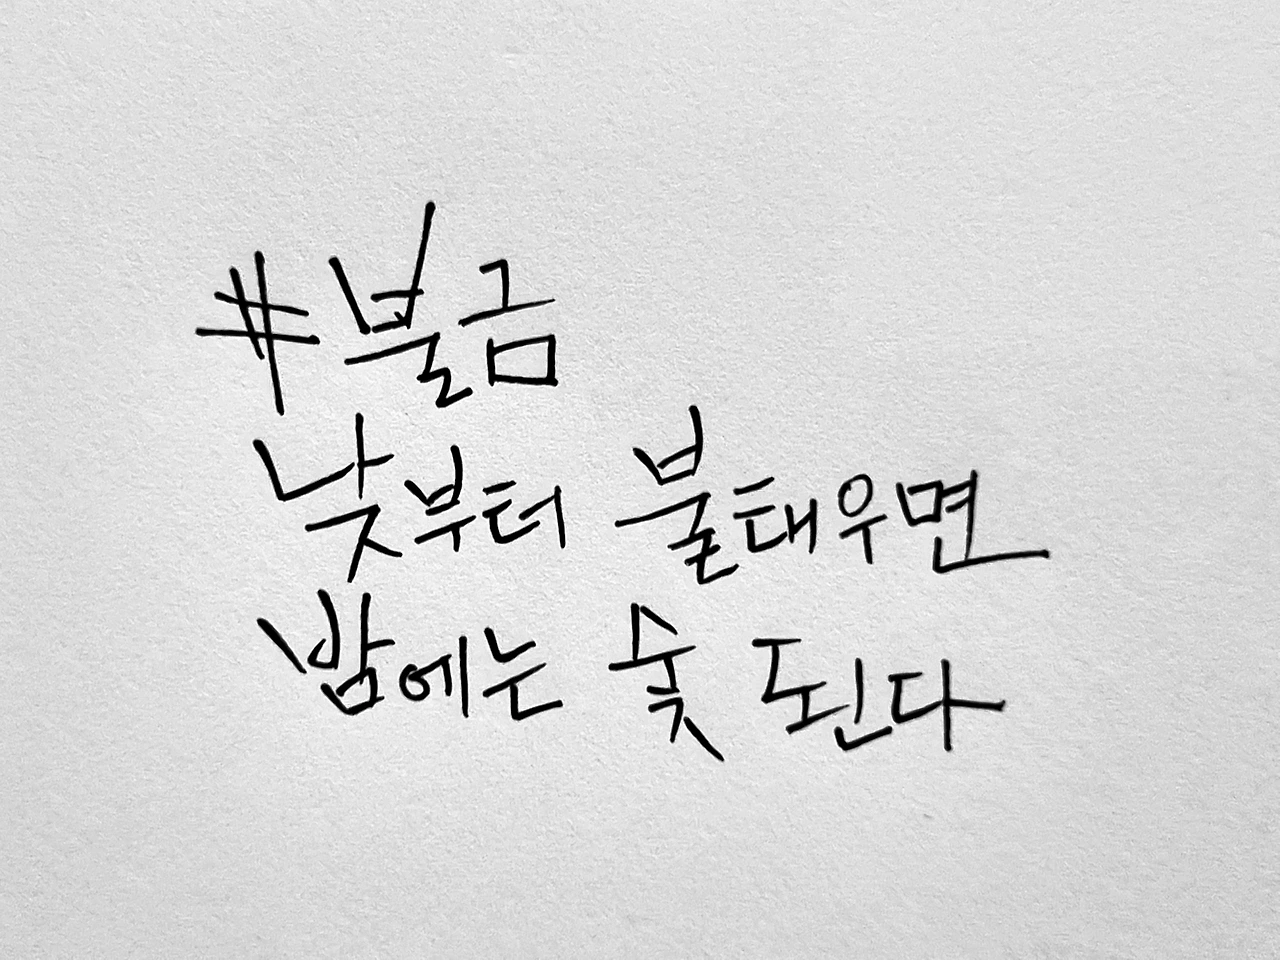 #불금
낮부터 불태우면
밤에는 숯 된다